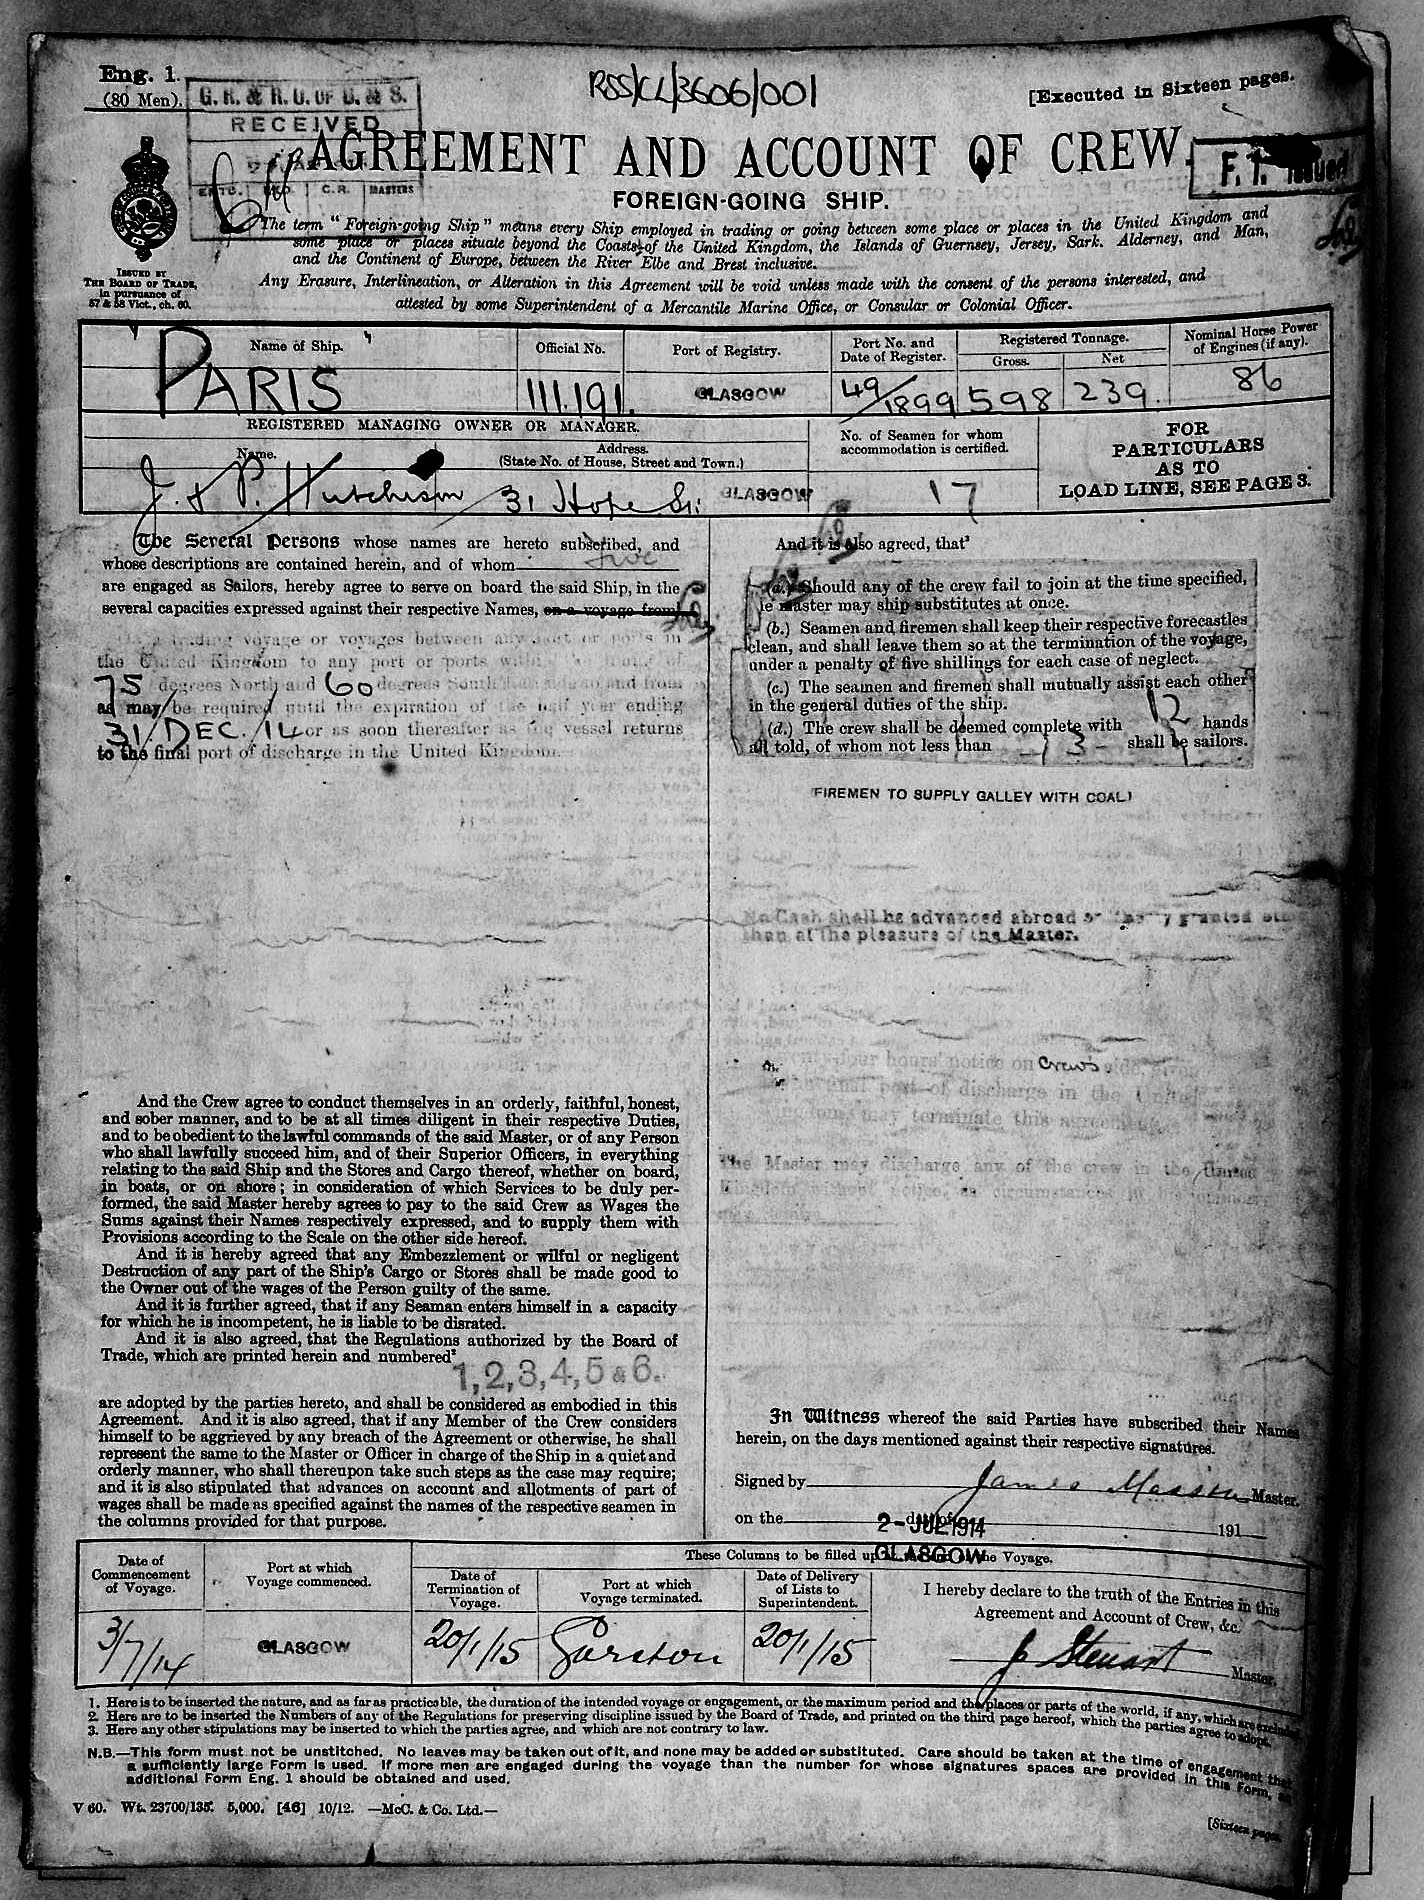 Eng. 1.
(80 Men).
G. R. & R. O. OF D. & S.
RECEIVED
C.R. MASTERS
RSS/CL/3606/001
[Executed in Sixteen pages.
AGREEMENT AND ACCOUNT OF CREW.
F. I. Issued
FOREIGN-GOING SHIP.
ISSUED BY
THE BOARD OF TRADE,
in pursuance of
57 & 58 Vict., ch. 60.
The term "Foreign-going Ship" means every Ship employed in trading or going between some place or places in the United Kingdom and
some place or places situate beyond the Coasts of the United Kingdom, the Islands of Guernsey, Jersey, Sark, Alderney, and Man,
and the Continent of Europe, between the River Elbe and Brest inclusive.
Any Erasure, Interlineation, or Alteration in this Agreement will be void unless made with the consent of the persons interested, and
attested by some Superintendent of a Mercantile Marine Office, or Consular or Colonial Officer.
Name of Ship.
Official No.
Port of Registry.
Port No. and
Date of Register.
Registered Tonnage.
Gross.
Net
Nominal Horse Power
of Engines (if any).
"PARIS"
111.191.
GLASGOW
49/1899
598
239.
86
REGISTERED MANAGING OWNER OR MANAGER.
Name.
Address.
(State No. of House, Street and Town.)
No. of Seamen for whom
accommodation is certified.
FOR
PARTICULARS
AS TO
LOAD LINE, SEE PAGE 3.
J. & P. Hutchison
31 Hope St.
GLASGOW
17
The Several Persons whose names are hereto subscribed, and
whose descriptions are contained herein, and of whom five
are engaged as Sailors, hereby agree to serve on board the said Ship, in the
several capacities expressed against their respective Names, on a voyage from
On a trading voyage or voyages between any port or ports in
the United Kingdom to any port or ports within the limits of
75 degrees North and 60 degrees South and from
as may be required until the expiration of the half year ending
31/DEC./14 or as soon thereafter as the vessel returns
to the final port of discharge in the United Kingdom.
And the Crew agree to conduct themselves in an orderly, faithful, honest,
and sober manner, and to be at all times diligent in their respective Duties,
and to be obedient to the lawful commands of the said Master, or of any Person
who shall lawfully succeed him, and of their Superior Officers, in everything
relating to the said Ship and the Stores and Cargo thereof, whether on board,
in boats, or on shore; in consideration of which Services to be duly per-
formed, the said Master hereby agrees to pay to the said Crew as Wages the
Sums against their Names respectively expressed, and to supply them with
Provisions according to the Scale on the other side hereof.
And it is hereby agreed that any Embezzlement or wilful or negligent
Destruction of any part of the Ship's Cargo or Stores shall be made good to
the Owner out of the wages of the Person guilty of the same.
And it is further agreed, that if any Seaman enters himself in a capacity
for which he is incompetent, he is liable to be disrated.
And it is also agreed, that the Regulations authorized by the Board of
Trade, which are printed herein and numbered²
1, 2, 3, 4, 5 & 6.
are adopted by the parties hereto, and shall be considered as embodied in this
Agreement. And it is also agreed, that if any Member of the Crew considers
himself to be aggrieved by any breach of the Agreement or otherwise, he shall
represent the same to the Master or Officer in charge of the Ship in a quiet and
orderly manner, who shall thereupon take such steps as the case may require;
and it is also stipulated that advances on account and allotments of part of
wages shall be made as specified against the names of the respective seamen in
the columns provided for that purpose.
And it is also agreed, that³
(a.) Should any of the crew fail to join at the time specified,
master may ship substitutes at once.
(b.) Seamen and firemen shall keep their respective forecastles
clean, and shall leave them so at the termination of the voyage,
under a penalty of five shillings for each case of neglect.
(c.) The seamen and firemen shall mutually assist each other
in the general duties of the ship.
(d.) The crew shall be deemed complete with 12 hands
all told, of whom not less than 3 shall be sailors.
FIREMEN TO SUPPLY GALLEY WITH COAL
No Cash shall be advanced abroad or liberty granted
than at the pleasure of the Master.
hours' notice on crew's side,
port of discharge in the United
may terminate this agreement
The Master may discharge any of the crew in the United
Kingdom
In Witness whereof the said Parties have subscribed their Names
herein, on the days mentioned against their respective signatures.
Signed by James Masson Master.
on the day of 191
2 - JUL 1914
GLASGOW
Date of
Commencement
of Voyage.
Port at which
Voyage commenced.
These Columns to be filled up at the end of the Voyage.
Date of
Termination of
Voyage.
Port at which
Voyage terminated.
Date of Delivery
of Lists to
Superintendent.
I hereby declare to the truth of the Entries in this
Agreement and Account of Crew, &c.
3/7/14
GLASGOW
20/1/15
Garston
20/1/15
J Stewart Master.
1. Here is to be inserted the nature, and as far as practicable, the duration of the intended voyage or engagement, or the maximum period and the places or parts of the world, if any, which are excluded
2. Here are to be inserted the Numbers of any of the Regulations for preserving discipline issued by the Board of Trade, and printed on the third page hereof, which the parties agree to adopt.
3. Here any other stipulations may be inserted to which the parties agree, and which are not contrary to law.
N.B.—This form must not be unstitched. No leaves may be taken out of it, and none may be added or substituted. Care should be taken at the time of engagement that
a sufficiently large Form is used. If more men are engaged during the voyage than the number for whose signatures spaces are provided in this Form, an
additional Form Eng. 1 should be obtained and used.
V 60. Wt. 23700/135. 5,000. [46] 10/12. —McC. & Co. Ltd.—
[Sixteen pages.